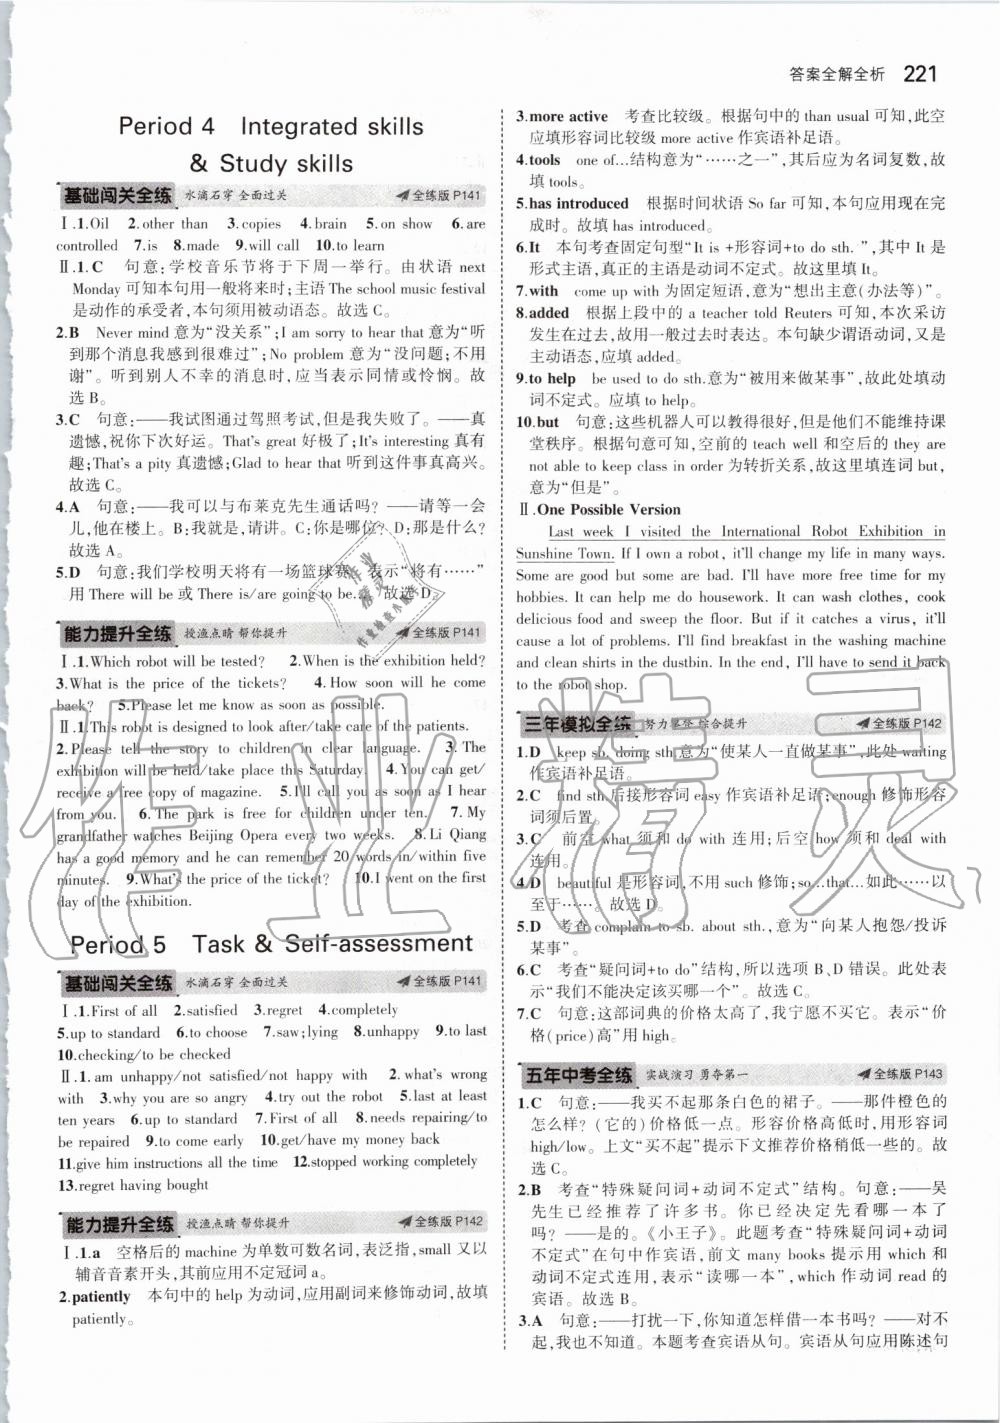 答案全解全析 221
Period 4 Integrated skills
& Study skills
基础闯关全练 水滴石穿 全面过关 全练版 P141
Ⅰ.1.Oil 2.other than 3.copies 4.brain 5.on show 6.are
controlled 7.is 8.made 9.will call 10.to learn
Ⅱ.1.C 句意:学校音乐节将于下周一举行。由状语 next
Monday 可知本句用一般将来时;主语 The school music festival
是动作的承受者,本句须用被动语态。故选 C。
2.B Never mind 意为“没关系”;I am sorry to hear that 意为“听
到那个消息我感到很难过”;No problem 意为“没问题;不用
谢”。听到别人不幸的消息时,应当表示同情或怜悯。故
选 B。
3.C 句意:——我试图通过驾照考试,但是我失败了。——真
遗憾,祝你下次好运。That's great 好极了;It's interesting 真有
趣;That's a pity 真遗憾;Glad to hear that 听到这件事真高兴。
故选 C。
4.A 句意:——我可以与布莱克先生通话吗? ——请等一会
儿,他在楼上。B:我就是,请讲。C:你是哪位? D:那是什么?
故选 A。
5.D 句意:我们学校明天将有一场篮球赛。表示“将有……”
用 There will be 或 There is/are going to be.。故选 D。
能力提升全练 授渔点睛 帮你提升 全练版 P141
Ⅰ.1.Which robot will be tested? 2.When is the exhibition held?
3.What is the price of the tickets? 4.How soon will he come
back? 5.Please let me know as soon as possible.
Ⅱ.1.This robot is designed to look after/take care of the patients.
2.Please tell the story to children in clear language. 3.The
exhibition will be held/take place this Saturday. 4.You can get/
receive a free copy of magazine. 5.I'll call you as soon as I hear
from you. 6.The park is free for children under ten. 7.My
grandfather watches Beijing Opera every two weeks. 8.Li Qiang
has a good memory and he can remember 20 words in/within five
minutes. 9.What's the price of the ticket? 10.I went on the first
day of the exhibition.
Period 5 Task & Self-assessment
基础闯关全练 水滴石穿 全面过关 全练版 P141
Ⅰ.1.First of all 2.satisfied 3.regret 4.completely
5.up to standard 6.to choose 7.saw;lying 8.unhappy 9.to last
10.checking/to be checked
Ⅱ.1.am unhappy/not satisfied/not happy with 2.what's wrong
with 3.why you are so angry 4.try out the robot 5.last at least
ten years 6.up to standard 7.First of all 8.needs repairing/to
be repaired 9.to come early 10.get/have my money back
11.give him instructions all the time 12.stopped working completely
13.regret having bought
能力提升全练 授渔点睛 帮你提升 全练版 P142
Ⅰ.1.a 空格后的 machine 为单数可数名词,表泛指,small 又以
辅音音素开头,其前应用不定冠词 a。
2.patiently 本句中的 help 为动词,应用副词来修饰动词,故填
patiently。
3.more active 考查比较级。根据句中的 than usual 可知,此空
应填形容词比较级 more active 作宾语补足语。
4.tools one of...结构意为“……之一”,其后应为名词复数,故
填 tools。
5.has introduced 根据时间状语 So far 可知,本句应用现在完
成时。故填 has introduced。
6.It 本句考查固定句型“It is +形容词+to do sth. ”,其中 It 是
形式主语,真正的主语是动词不定式。故这里填 It。
7.with come up with 为固定短语,意为“想出主意(办法等)”。
8.added 根据上段中的 a teacher told Reuters 可知,本次采访
发生在过去,故用一般过去时表达。本句缺少谓语动词,又是
主动语态,应填 added。
9.to help be used to do sth.意为“被用来做某事”,故此处填动
词不定式。应填 to help。
10.but 句意:这些机器人可以教得很好,但是他们不能维持课
堂秩序。根据句意可知,空前的 teach well 和空后的 they are
not able to keep class in order 为转折关系,故这里填连词 but,
意为“但是”。
Ⅱ.One Possible Version
Last week I visited the International Robot Exhibition in
Sunshine Town. If I own a robot, it'll change my life in many ways.
Some are good but some are bad. I'll have more free time for my
hobbies. It can help me do housework. It can wash clothes, cook
delicious food and sweep the floor. But if it catches a virus, it'll
cause a lot of problems. I'll find breakfast in the washing machine
and clean shirts in the dustbin. In the end, I'll have to send it back
to the robot shop.
三年模拟全练 努力攀登 综合提升 全练版 P142
1.D keep sb. doing sth.意为“使某人一直做某事”,此处 waiting
作宾语补足语。
2.C find sth.后接形容词 easy 作宾语补足语;enough 修饰形容
词须后置。
3.C 前空 what 须和 do with 连用;后空 how 须和 deal with
连用。
4.D beautiful 是形容词,不用 such 修饰;so...that...如此……以
至于……。故选 D。
5.D 考查 complain to sb. about sth.,意为“向某人抱怨/投诉
某事”。
6.C 考查“疑问词+to do”结构,所以选项 B、D 错误。此处表
示“我们不能决定该买哪一个”。故选 C。
7.C 句意:这部词典的价格太高了,我宁愿不买它。表示“价
格(price)高”用 high。
五年中考全练 实战演习 勇夺第一 全练版 P143
1.C 句意:——我买不起那条白色的裙子。——那件橙色的
怎么样? (它的)价格低一点。形容价格高或低时,用形容词
high/low。上文“买不起”提示下文推荐价格稍低一些的。故
选 C。
2.B 考查“特殊疑问词+动词不定式”结构。句意:——吴
先生已经推荐了许多书。你已经决定先看哪一本了
吗? ——是的。《小王子》。此题考查“特殊疑问词+动词
不定式”在句中作宾语,前文 many books 提示用 which 和
动词不定式连用,表示“读哪一本”,which 作动词 read 的
宾语。故选 B。
3.A 句意:——打扰一下,你知道怎样借一本书吗? ——对不
起,我也不知道。本题考查宾语从句。宾语从句应用陈述句
作业精灵